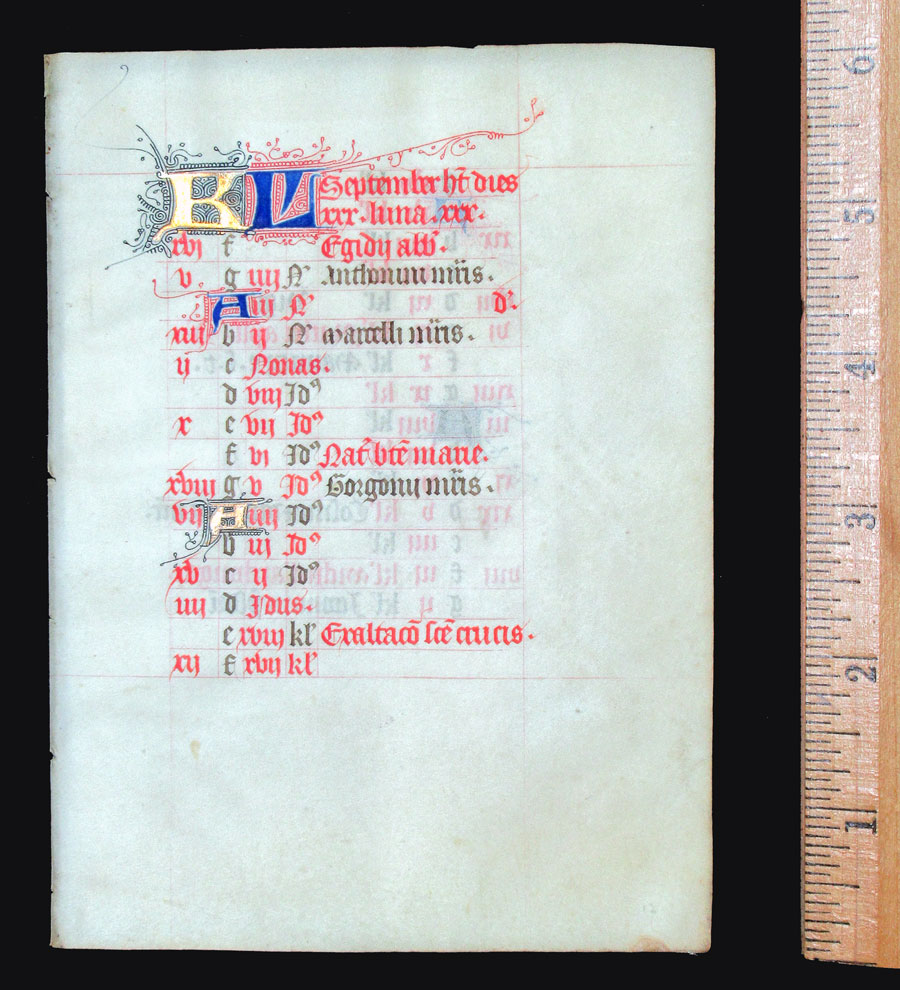 9
KL September ht dies
xxx. luna .xxx.
xvi f Egidij abb.
v. g iiii N Anthonini mris.
A iij N d
xiii b ij N Marcelli mris.
ij c Nonas.
d viij Id9
x e vij Id9
f vi Id9 Nat bte marie.
xviii g v Id9 Gorgonij mris.
vij A iiij Id9
b iij Id9
xv c ij Id9
iiij d Idus.
e xviij kl Exaltaco sce crucis.
xij f xvij kl
6
5
4
3
2
1